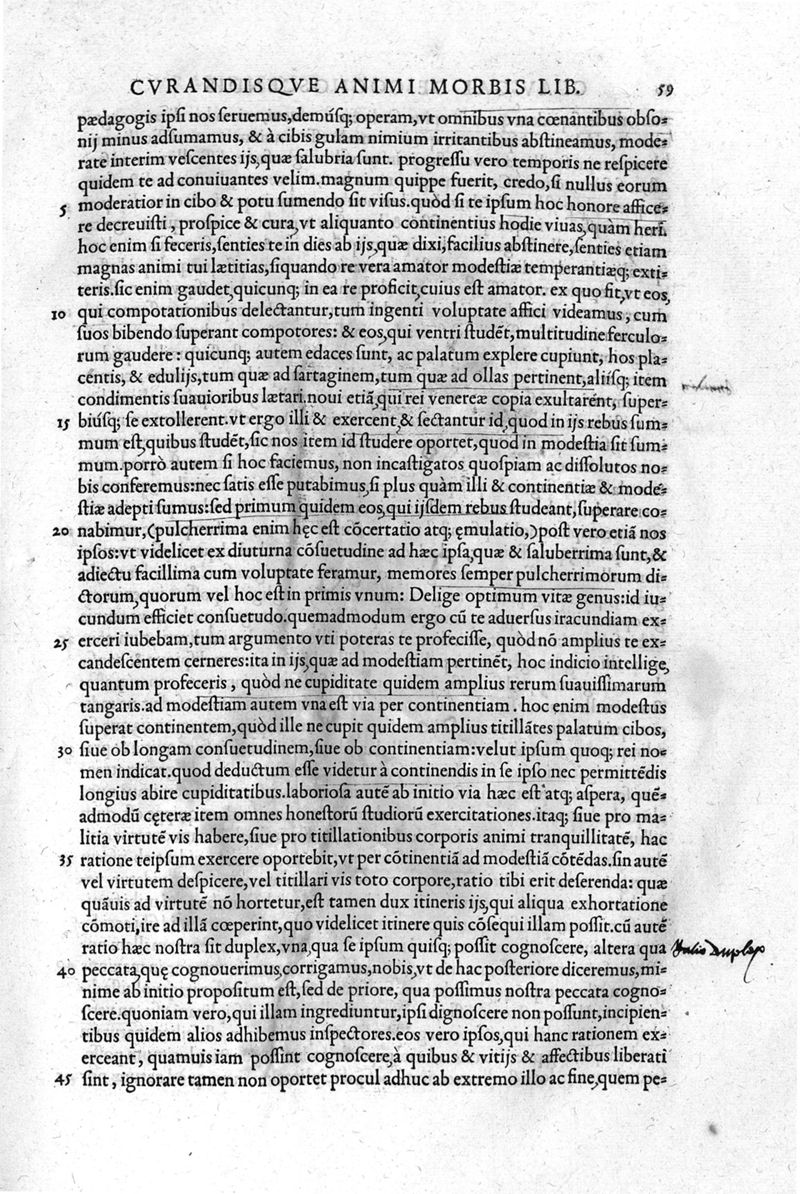 CVRANDISQVE ANIMI MORBIS LIB. 59
pædagogis ipsi nos seruemus,demúsq; operam,vt omnibus vna cœnantibus obso=
nij minus adsumamus, & à cibis gulam nimium irritantibus abstineamus, mode=
rate interim vescentes ijs,quæ salubria sunt. progressu vero temporis ne respicere
quidem te ad conuiuantes velim.magnum quippe fuerit, credo,si nullus eorum
5 moderatior in cibo & potu sumendo sit visus.quòd si te ipsum hoc honore affice=
re decreuisti, prospice & cura,vt aliquanto continentius hodie viuas,quàm heri.
hoc enim si feceris,senties te in dies ab ijs,quæ dixi,facilius abstinere,senties etiam
magnas animi tui lætitias,siquando re vera amator modestiæ temperantiæq; exti=
teris.sic enim gaudet,quicunq; in ea re proficit,cuius est amator. ex quo fit,vt eos,
10 qui compotationibus delectantur,tum ingenti voluptate affici videamus, cum
suos bibendo superant compotores: & eos,qui ventri studēt,multitudine ferculo=
rum gaudere: quicunq; autem edaces sunt, ac palatum explere cupiunt, hos pla=
centis, & edulijs,tum quæ ad sartaginem,tum quæ ad ollas pertinent,aliísq; item
condimentis suauioribus lætari.noui etiā,qui rei venereæ copia exultarēnt, super=
15 biúsq; se extollerent.vt ergo illi & exercent,& sectantur id,quod in ijs rebus sum=
mum est,quibus studēt,sic nos item id studere oportet,quod in modestia sit sum=
mum.porrò autem si hoc faciemus, non incastigatos quospiam ac dissolutos no=
bis conferemus:nec satis esse putabimus,si plus quàm illi & continentiæ & mode=
stiæ adepti sumus:sed primum quidem eos,qui ijsdem rebus studeant,superare co=
20 nabimur,(pulcherrima enim hęc est cōcertatio atq; ęmulatio,)post vero etiā nos
ipsos:vt videlicet ex diuturna cōsuetudine ad hæc ipsa,quæ & saluberrima sunt,&
adiectu facillima cum voluptate feramur, memores semper pulcherrimorum di=
ctorum,quorum vel hoc est in primis vnum: Delige optimum vitæ genus:id iu=
cundum efficiet consuetudo.quemadmodum ergo cū te aduersus iracundiam ex=
25 erceri iubebam,tum argumento vti poteras te profecisse, quòd nō amplius te ex=
candescentem cerneres:ita in ijs,quæ ad modestiam pertinēt, hoc indicio intellige,
quantum profeceris, quòd ne cupiditate quidem amplius rerum suauissimarum
tangaris.ad modestiam autem vna est via per continentiam. hoc enim modestus
superat continentem,quòd ille ne cupit quidem amplius titillātes palatum cibos,
30 siue ob longam consuetudinem,siue ob continentiam:velut ipsum quoq; rei no=
men indicat.quod deductum esse videtur à continendis in se ipso nec permittēdis
longius abire cupiditatibus.laboriosa autē ab initio via hæc est atq; aspera, quē=
admodū cęteræ item omnes honestorū studiorū exercitationes.itaq; siue pro ma=
litia virtutē vis habere,siue pro titillationibus corporis animi tranquillitatē, hac
35 ratione teipsum exercere oportebit,vt per cōtinentiā ad modestiā cōtēdas.sin autē
vel virtutem despicere,vel titillari vis toto corpore,ratio tibi erit deserenda: quæ
quāuis ad virtutē nō hortetur,est tamen dux itineris ijs,qui aliqua exhortatione
cōmoti,ire ad illā cœperint,quo videlicet itinere quis cōsequi illam possit.cū autē
ratio hæc nostra sit duplex,vna,qua se ipsum quisq; possit cognoscere, altera qua
40 peccata,quę cognouerimus,corrigamus,nobis,vt de hac posteriore diceremus,mi=
nime ab initio propositum est,sed de priore, qua possimus nostra peccata cogno=
scere.quoniam vero,qui illam ingrediuntur,ipsi dignoscere non possunt,incipien=
tibus quidem alios adhibemus inspectores.eos vero ipsos,qui hanc rationem ex=
erceant, quamuis iam possint cognoscere,à quibus & vitijs & affectibus liberati
45 sint, ignorare tamen non oportet procul adhuc ab extremo illo ac fine,quem pe=